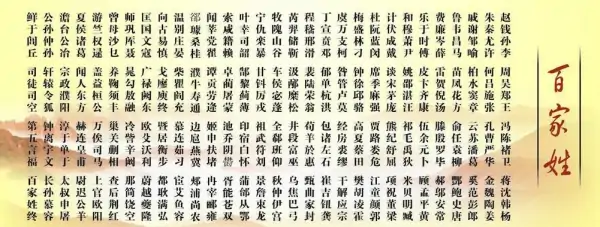 百家姓
赵钱孙李 周吴郑王 冯陈褚卫 蒋沈韩杨
朱秦尤许 何吕施张 孔曹严华 金魏陶姜
戚谢邹喻 柏水窦章 云苏潘葛 奚范彭郎
鲁韦昌马 苗凤花方 俞任袁柳 酆鲍史唐
费廉岑薛 雷贺倪汤 滕殷罗毕 郝邬安常
乐于时傅 皮卞齐康 伍余元卜 顾孟平黄
和穆萧尹 姚邵湛汪 祁毛禹狄 米贝明臧
计伏成戴 谈宋茅庞 熊纪舒屈 项祝董梁
杜阮蓝闵 席季麻强 贾路娄危 江童颜郭
梅盛林刁 钟徐邱骆 高夏蔡田 樊胡凌霍
虞万支柯 昝管卢莫 经房裘缪 干解应宗
丁宣贲邓 郁单杭洪 包诸左石 崔吉钮龚
程嵇邢滑 裴陆荣翁 荀羊於惠 甄曲家封
芮羿储靳 汲邴糜松 井段富巫 乌焦巴弓
牧隗山谷 车侯宓蓬 全郗班仰 秋仲伊宫
宁仇栾暴 甘钭厉戎 祖武符刘 景詹束龙
叶幸司韶 郜黎蓟薄 印宿白怀 蒲邰从鄂
索咸籍赖 卓蔺屠蒙 池乔阴鬱 胥能苍双
闻莘党翟 谭贡劳逄 姬申扶堵 冉宰郦雍
郤璩桑桂 濮牛寿通 边扈燕冀 郏浦尚农
温别庄晏 柴瞿阎充 慕连茹习 宦艾鱼容
向古易慎 戈廖庾终 暨居衡步 都耿满弘
匡国文寇 广禄阙东 欧殳沃利 蔚越夔隆
师巩厍聂 晁勾敖融 冷訾辛阚 那简饶空
曾毋沙乜 养鞠须丰 巢关蒯相 查后荆红
游竺权逯 盖益桓公 万俟司马 上官欧阳
夏侯诸葛 闻人东方 赫连皇甫 尉迟公羊
澹台公冶 宗政濮阳 淳于单于 太叔申屠
公孙仲孙 轩辕令狐 钟离宇文 长孙慕容
鲜于闾丘 司徒司空 第五言福 百家姓终